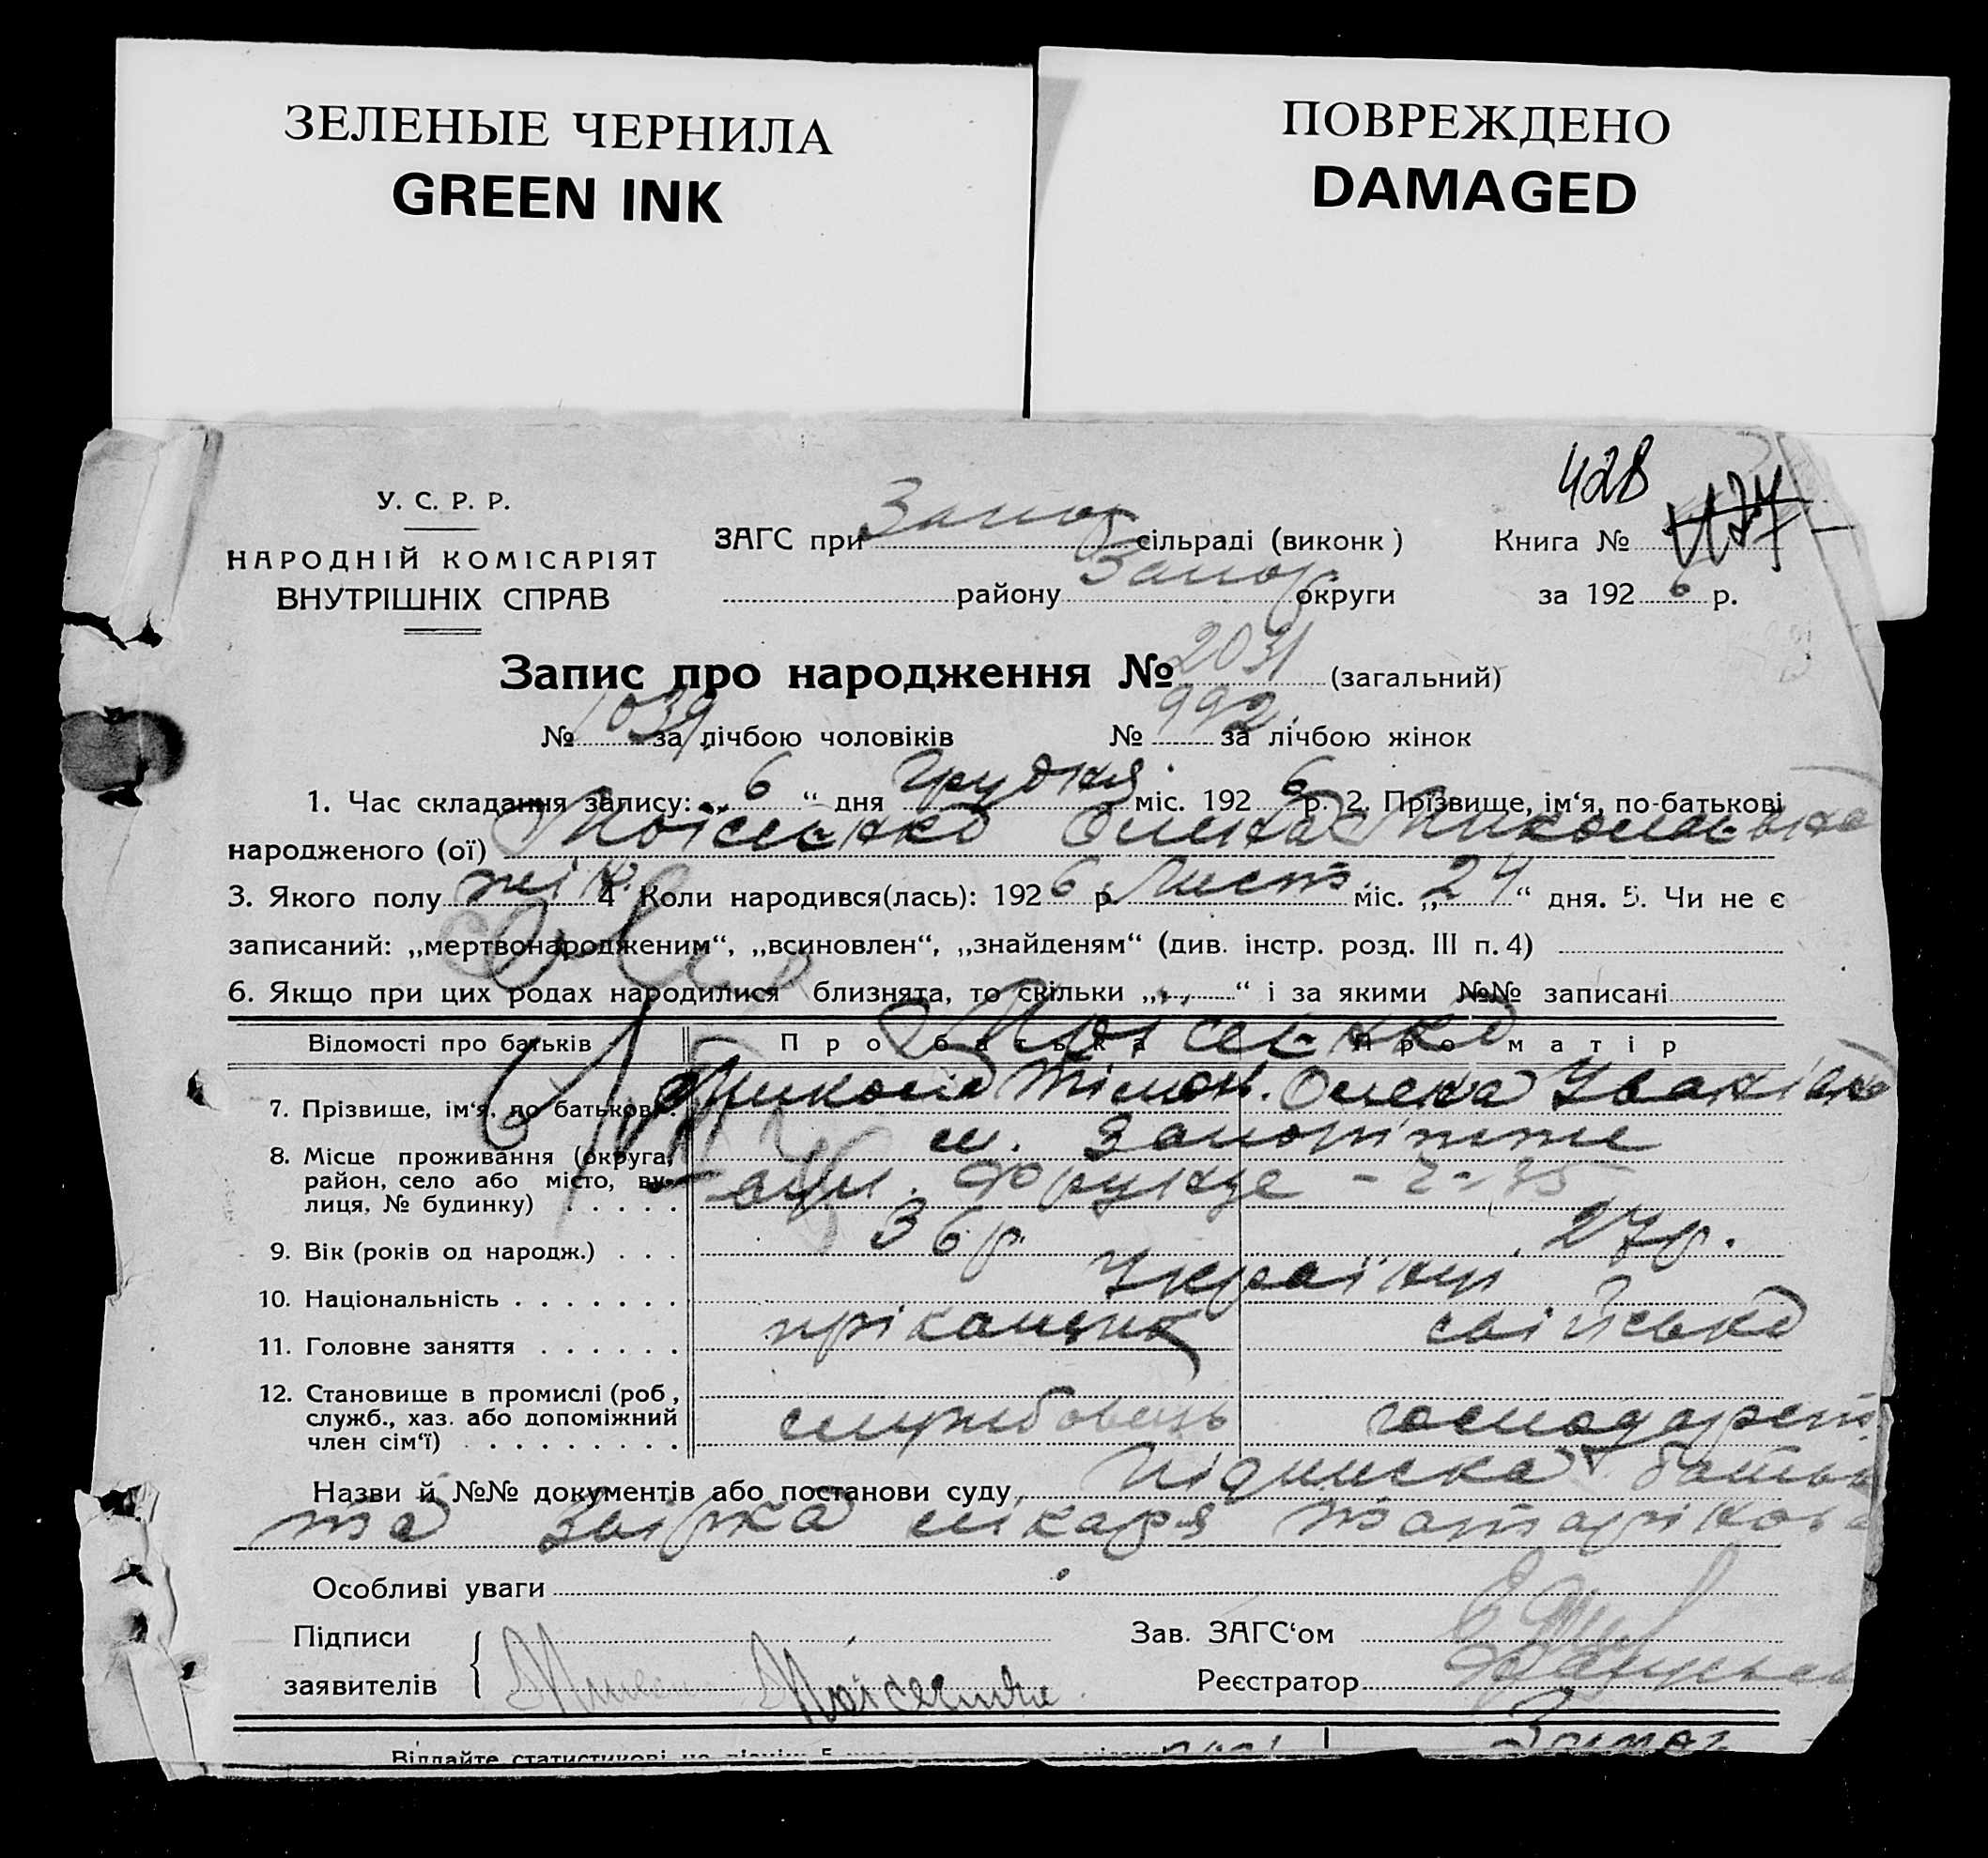 ЗЕЛЕНЫЕ ЧЕРНИЛА
GREEN INK
ПОВРЕЖДЕНО
DAMAGED
428
У. С. Р. Р.
НАРОДНІЙ КОМІСАРІЯТ
ВНУТРІШНІХ СПРАВ
ЗАГС при Запор сільраді (виконк)
району Запор округи
Книга №
за 1926 р.
Запис про народження № 2031 (загальний)
№ 1039 за лічбою чоловіків № 992 за лічбою жінок
1. Час складання запису: „ 6 “ дня грудня міс. 1926 р. 2. Прізвище, ім‘я, по-батькові
народженого (ої) Мойсеєнко Олена Миколаєвна
3. Якого полу жін. 4 Коли народився(лась): 1926 р. Лист. міс. „ 24 “ дня. 5. Чи не є
записаний: „мертвонародженим“, „всиновлен“, „знайденям“ (див. інстр. розд. III п. 4)
6. Якщо при цих родах народилися близнята, то скільки „ “ і за якими №№ записані
Відомості про батьків Про батька Про матір
7. Прізвище, ім‘я, по батькові. Микола Тімоф. Олена Іванівна
8. Місце проживання (округа, район, село або місто, вулиця, № будинку) м. Запоріжже
вул. Фрунзе
9. Вік (років од народж.) 36 р. 27 р.
10. Національність Українці
11. Головне заняття приканщик свійське
12. Становище в промислі (роб., служб., хаз. або допоміжний член сім‘ї) службовець господарст.
Назви й №№ документів або постанови суду, Підписка батьк
та лікаря
Особливі уваги
Підписи
заявителів
Зав. ЗАГС‘ом
Реєстратор